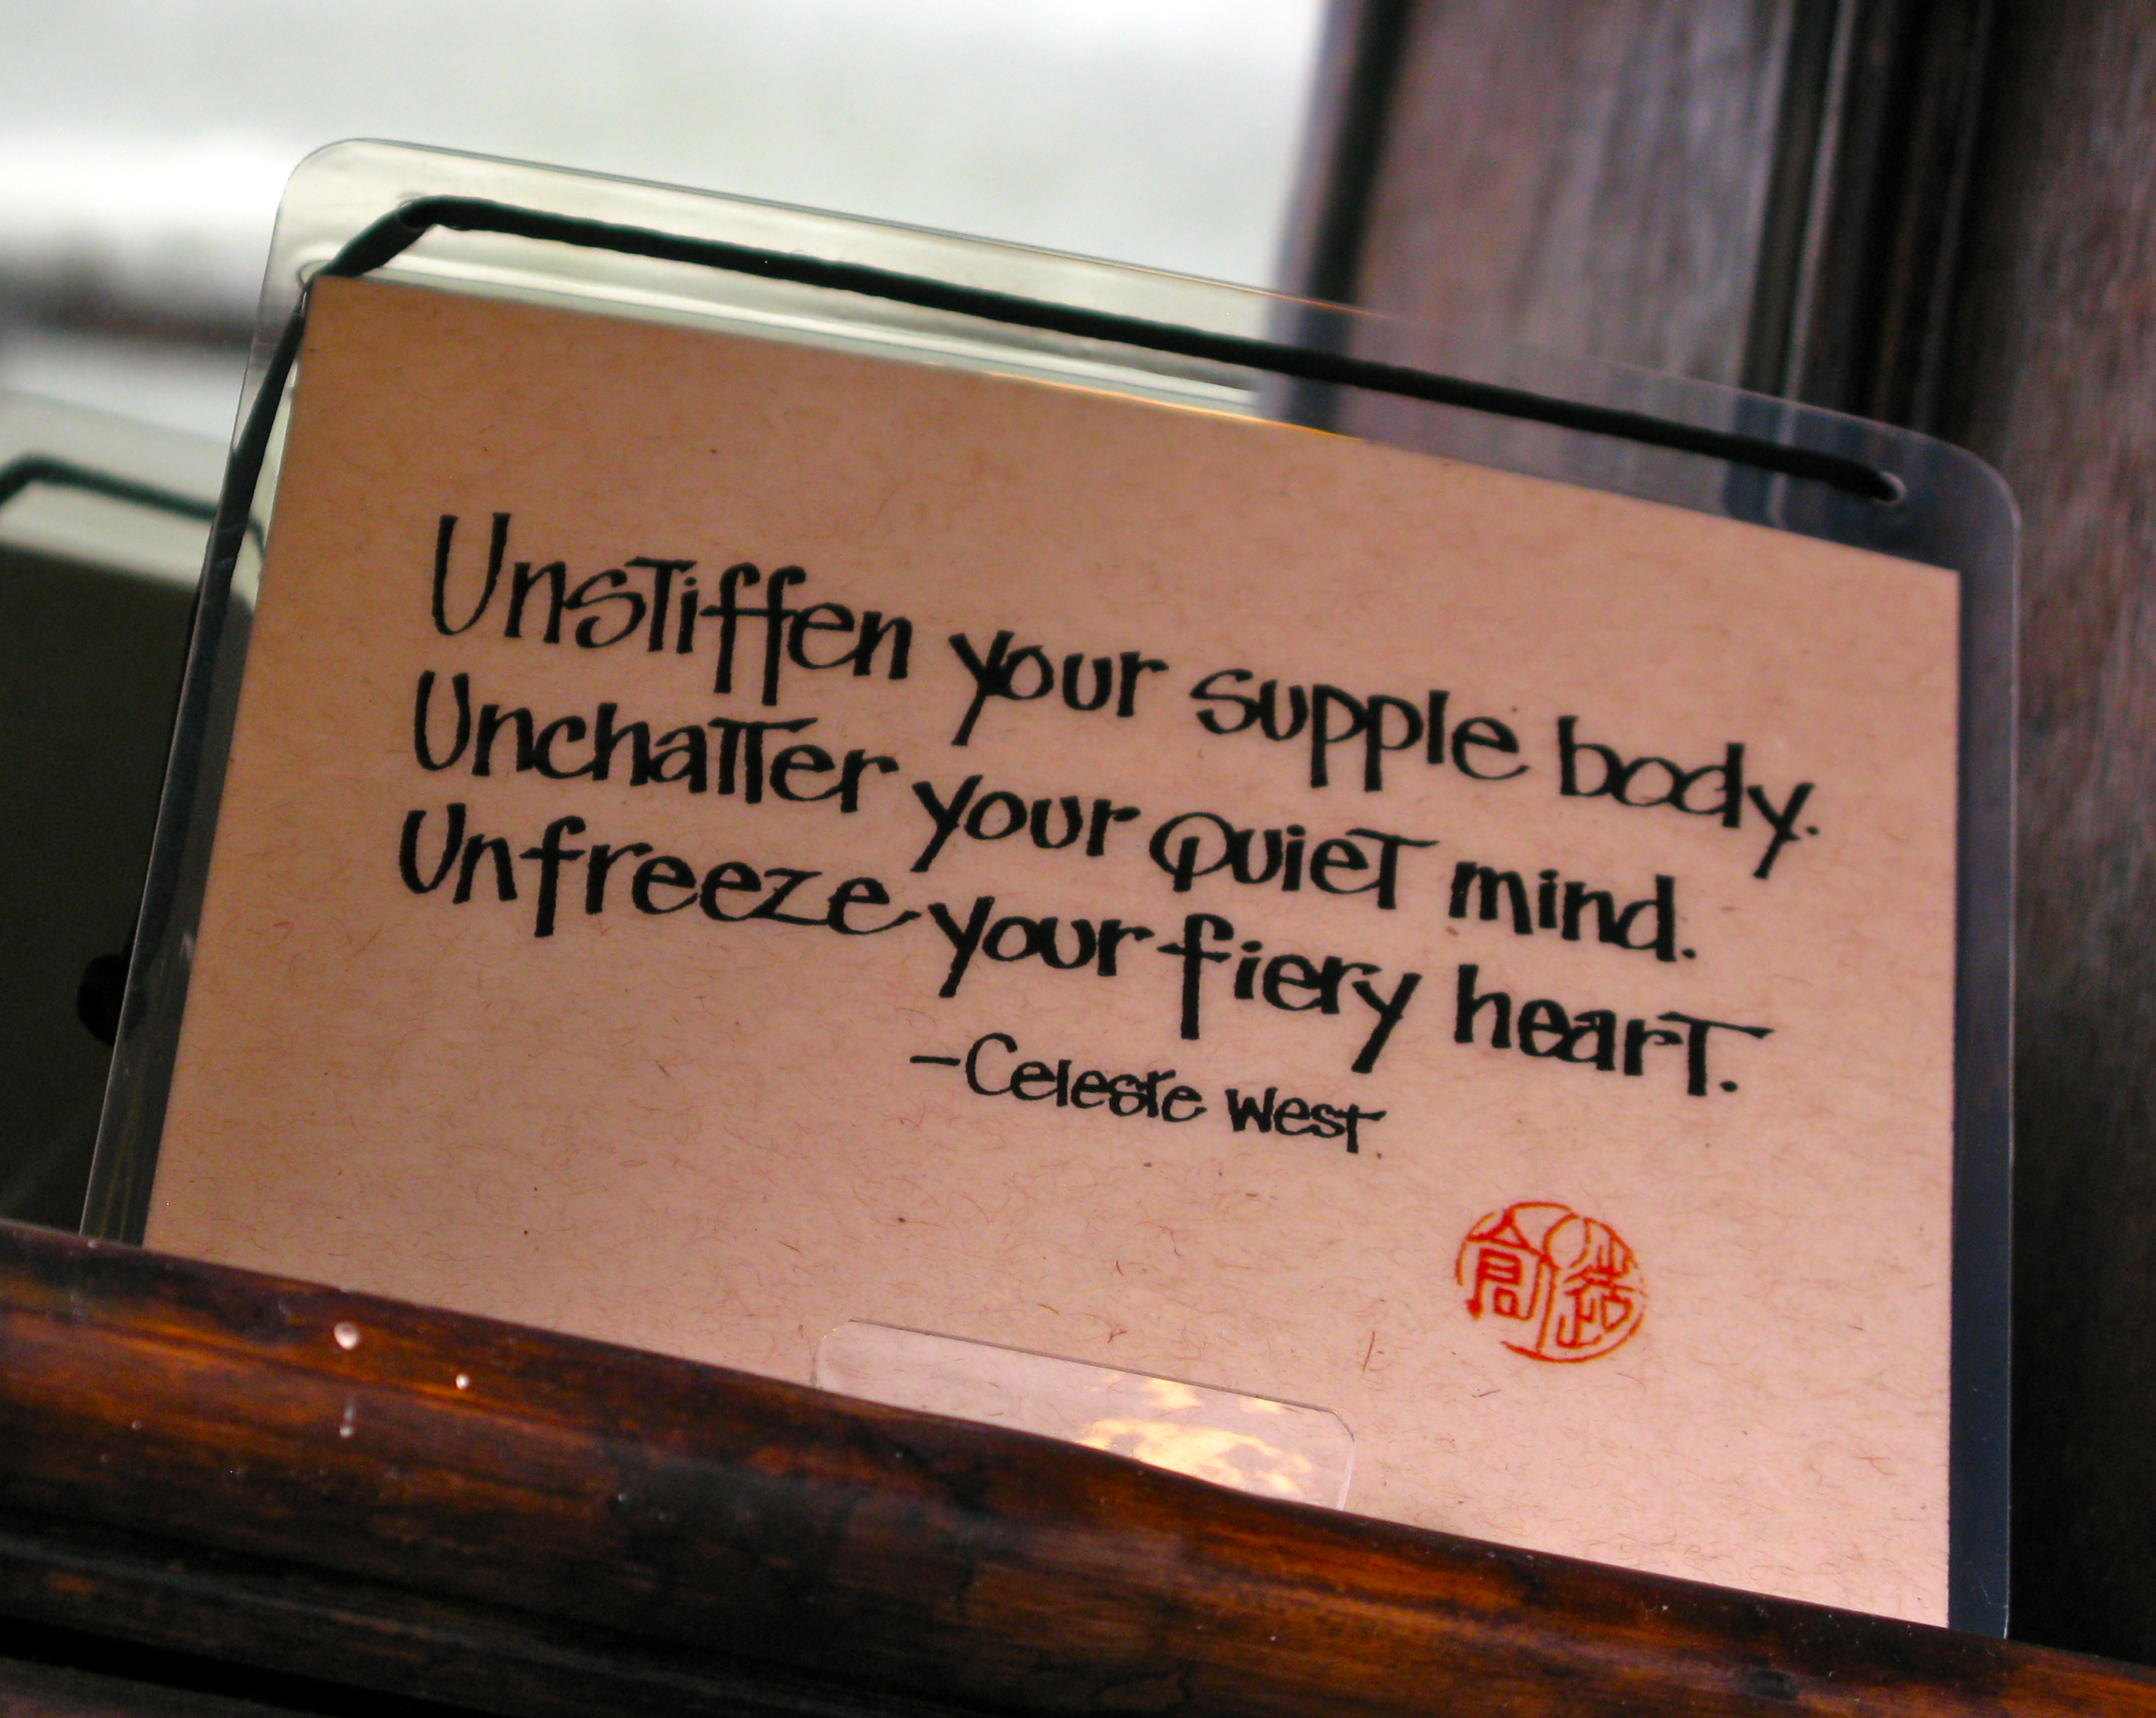 Unstiffen your supple body.
Unchatter your quiet mind.
Unfreeze your fiery heart.
-Celeste West
創造